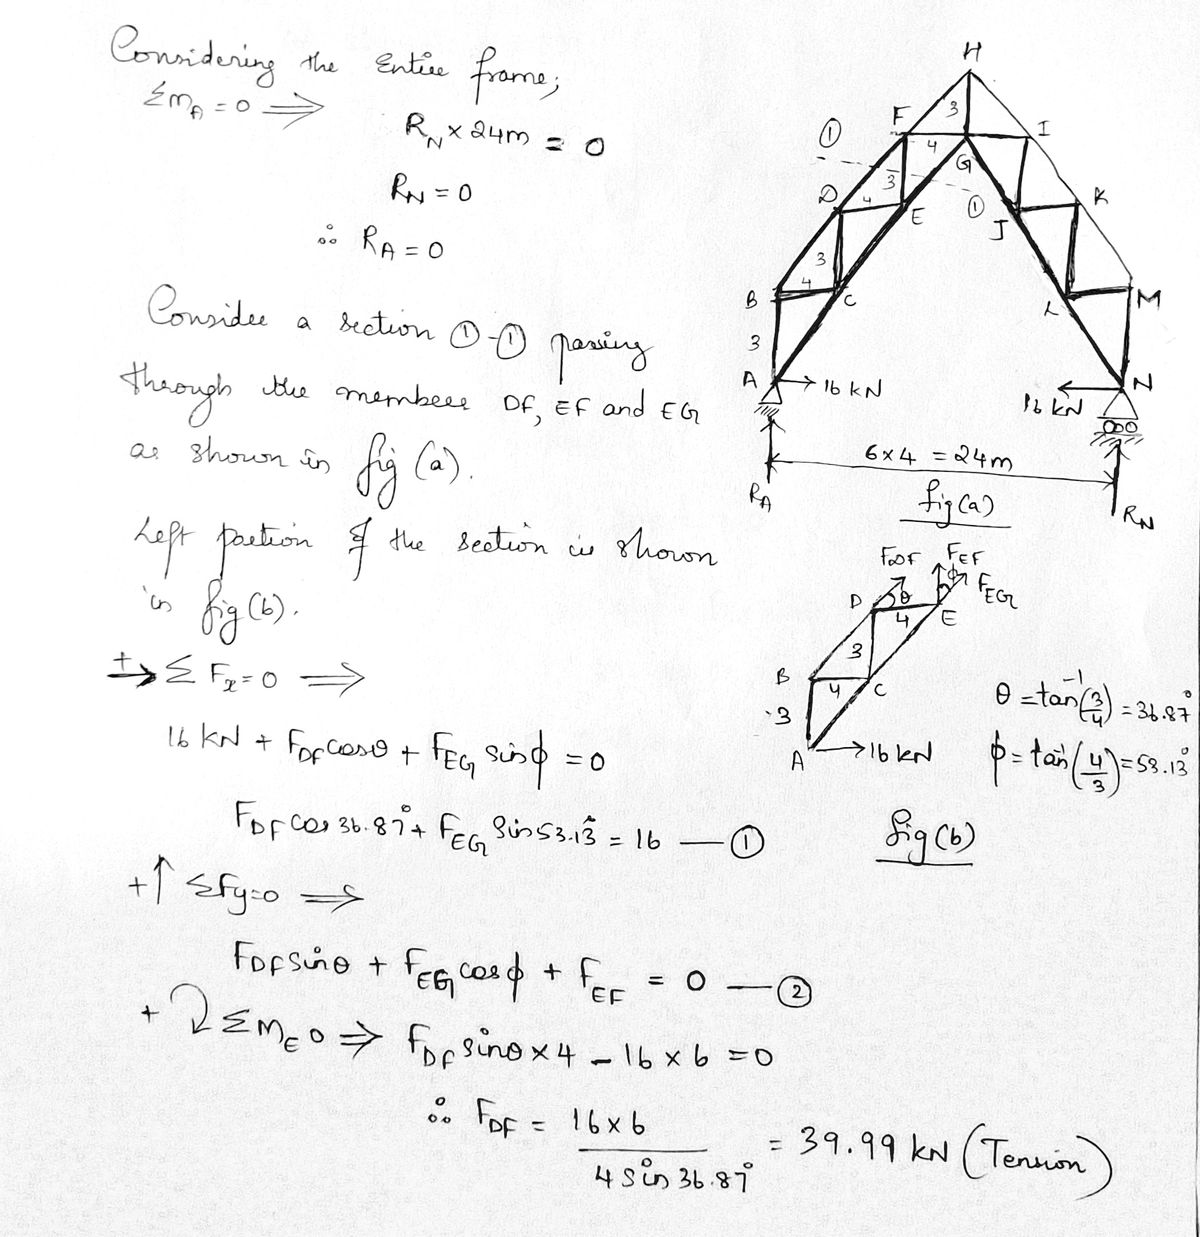 Considering the Entire frame;
ΣM_A = 0 ⟹
R_N × 24m = 0
R_N = 0
∴ R_A = 0
Consider a section ①-① passing
through the members DF, EF and EG
as shown in fig (a).
Left portion of the section is shown
in fig (b).
+→ Σ F_x = 0 ⟹
16 kN + F_DF cosθ + F_EG sinϕ = 0
F_DF cos 36.87° + F_EG Sin 53.13° = 16 — ①
+↑ ΣFy=0 ⟹
F_DF sinθ + F_EG cosϕ + F_EF = 0 — ②
+ ⤵ ΣM_E 0 ⟹ F_DF sinθ × 4 - 16 × 6 = 0
∴ F_DF = 16 × 6 / 4 Sin 36.87° = 39.99 kN (Tension)
H
3
F
I
①
4
G
3
D
4
E
①
J
K
3
4
B
C
L
M
3
A
16 kN
16 kN
N
6×4 = 24m
R_A
R_N
fig (a)
F_DF
F_EF
ϕ
F_EG
D
θ
4
E
3
B
4
C
3
A
16 kN
θ = tan⁻¹(3/4) = 36.87°
ϕ = tan⁻¹(4/3) = 53.13°
fig (b)